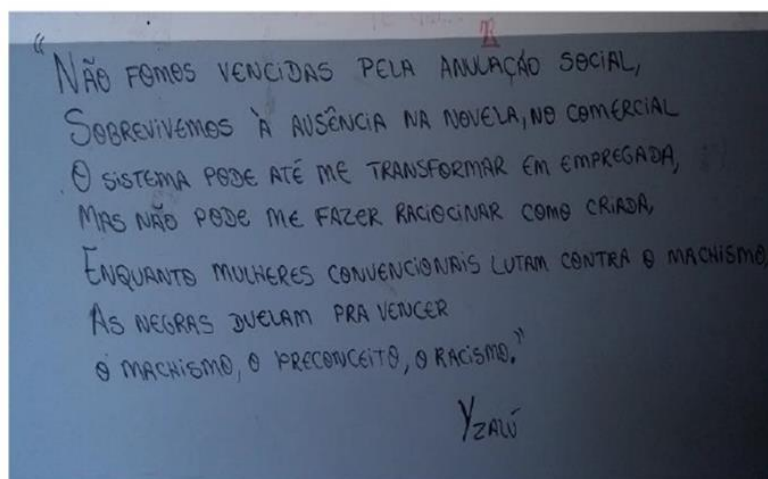 "NÃO FOMOS VENCIDAS PELA ANULAÇÃO SOCIAL,
SOBREVIVEMOS À AUSÊNCIA NA NOVELA, NO COMERCIAL
O SISTEMA PODE ATÉ ME TRANSFORMAR EM EMPREGADA,
MAS NÃO PODE ME FAZER RACIOCINAR COMO CRIADA,
ENQUANTO MULHERES CONVENCIONAIS LUTAM CONTRA O MACHISMO,
AS NEGRAS DUELAM PRA VENCER
O MACHISMO, O PRECONCEITO, O RACISMO."
YZALÚ